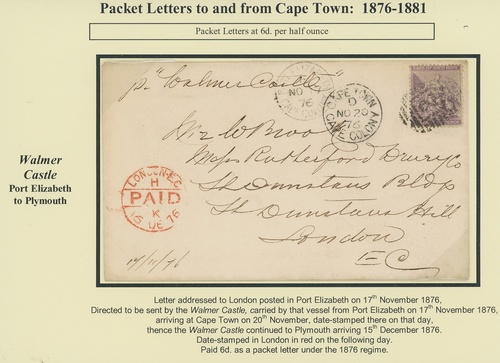 Packet Letters to and from Cape Town: 1876-1881
Packet Letters at 6d. per half ounce
Walmer
Castle
Port Elizabeth
to Plymouth
pr "Walmer Castle"
NO
76
CAPE TOWN
D
NO 20
76
CAPE COLONY
Messrs Rutherford Drury & Co
St Dunstans Bldgs
St Dunstans Hill
London
E C
LONDON E.C
H
PAID
K
16 DE 76
17/11/76
Letter addressed to London posted in Port Elizabeth on 17th November 1876,
Directed to be sent by the Walmer Castle, carried by that vessel from Port Elizabeth on 17th November 1876,
arriving at Cape Town on 20th November, date-stamped there on that day,
thence the Walmer Castle continued to Plymouth arriving 15th December 1876.
Date-stamped in London in red on the following day.
Paid 6d. as a packet letter under the 1876 regime.